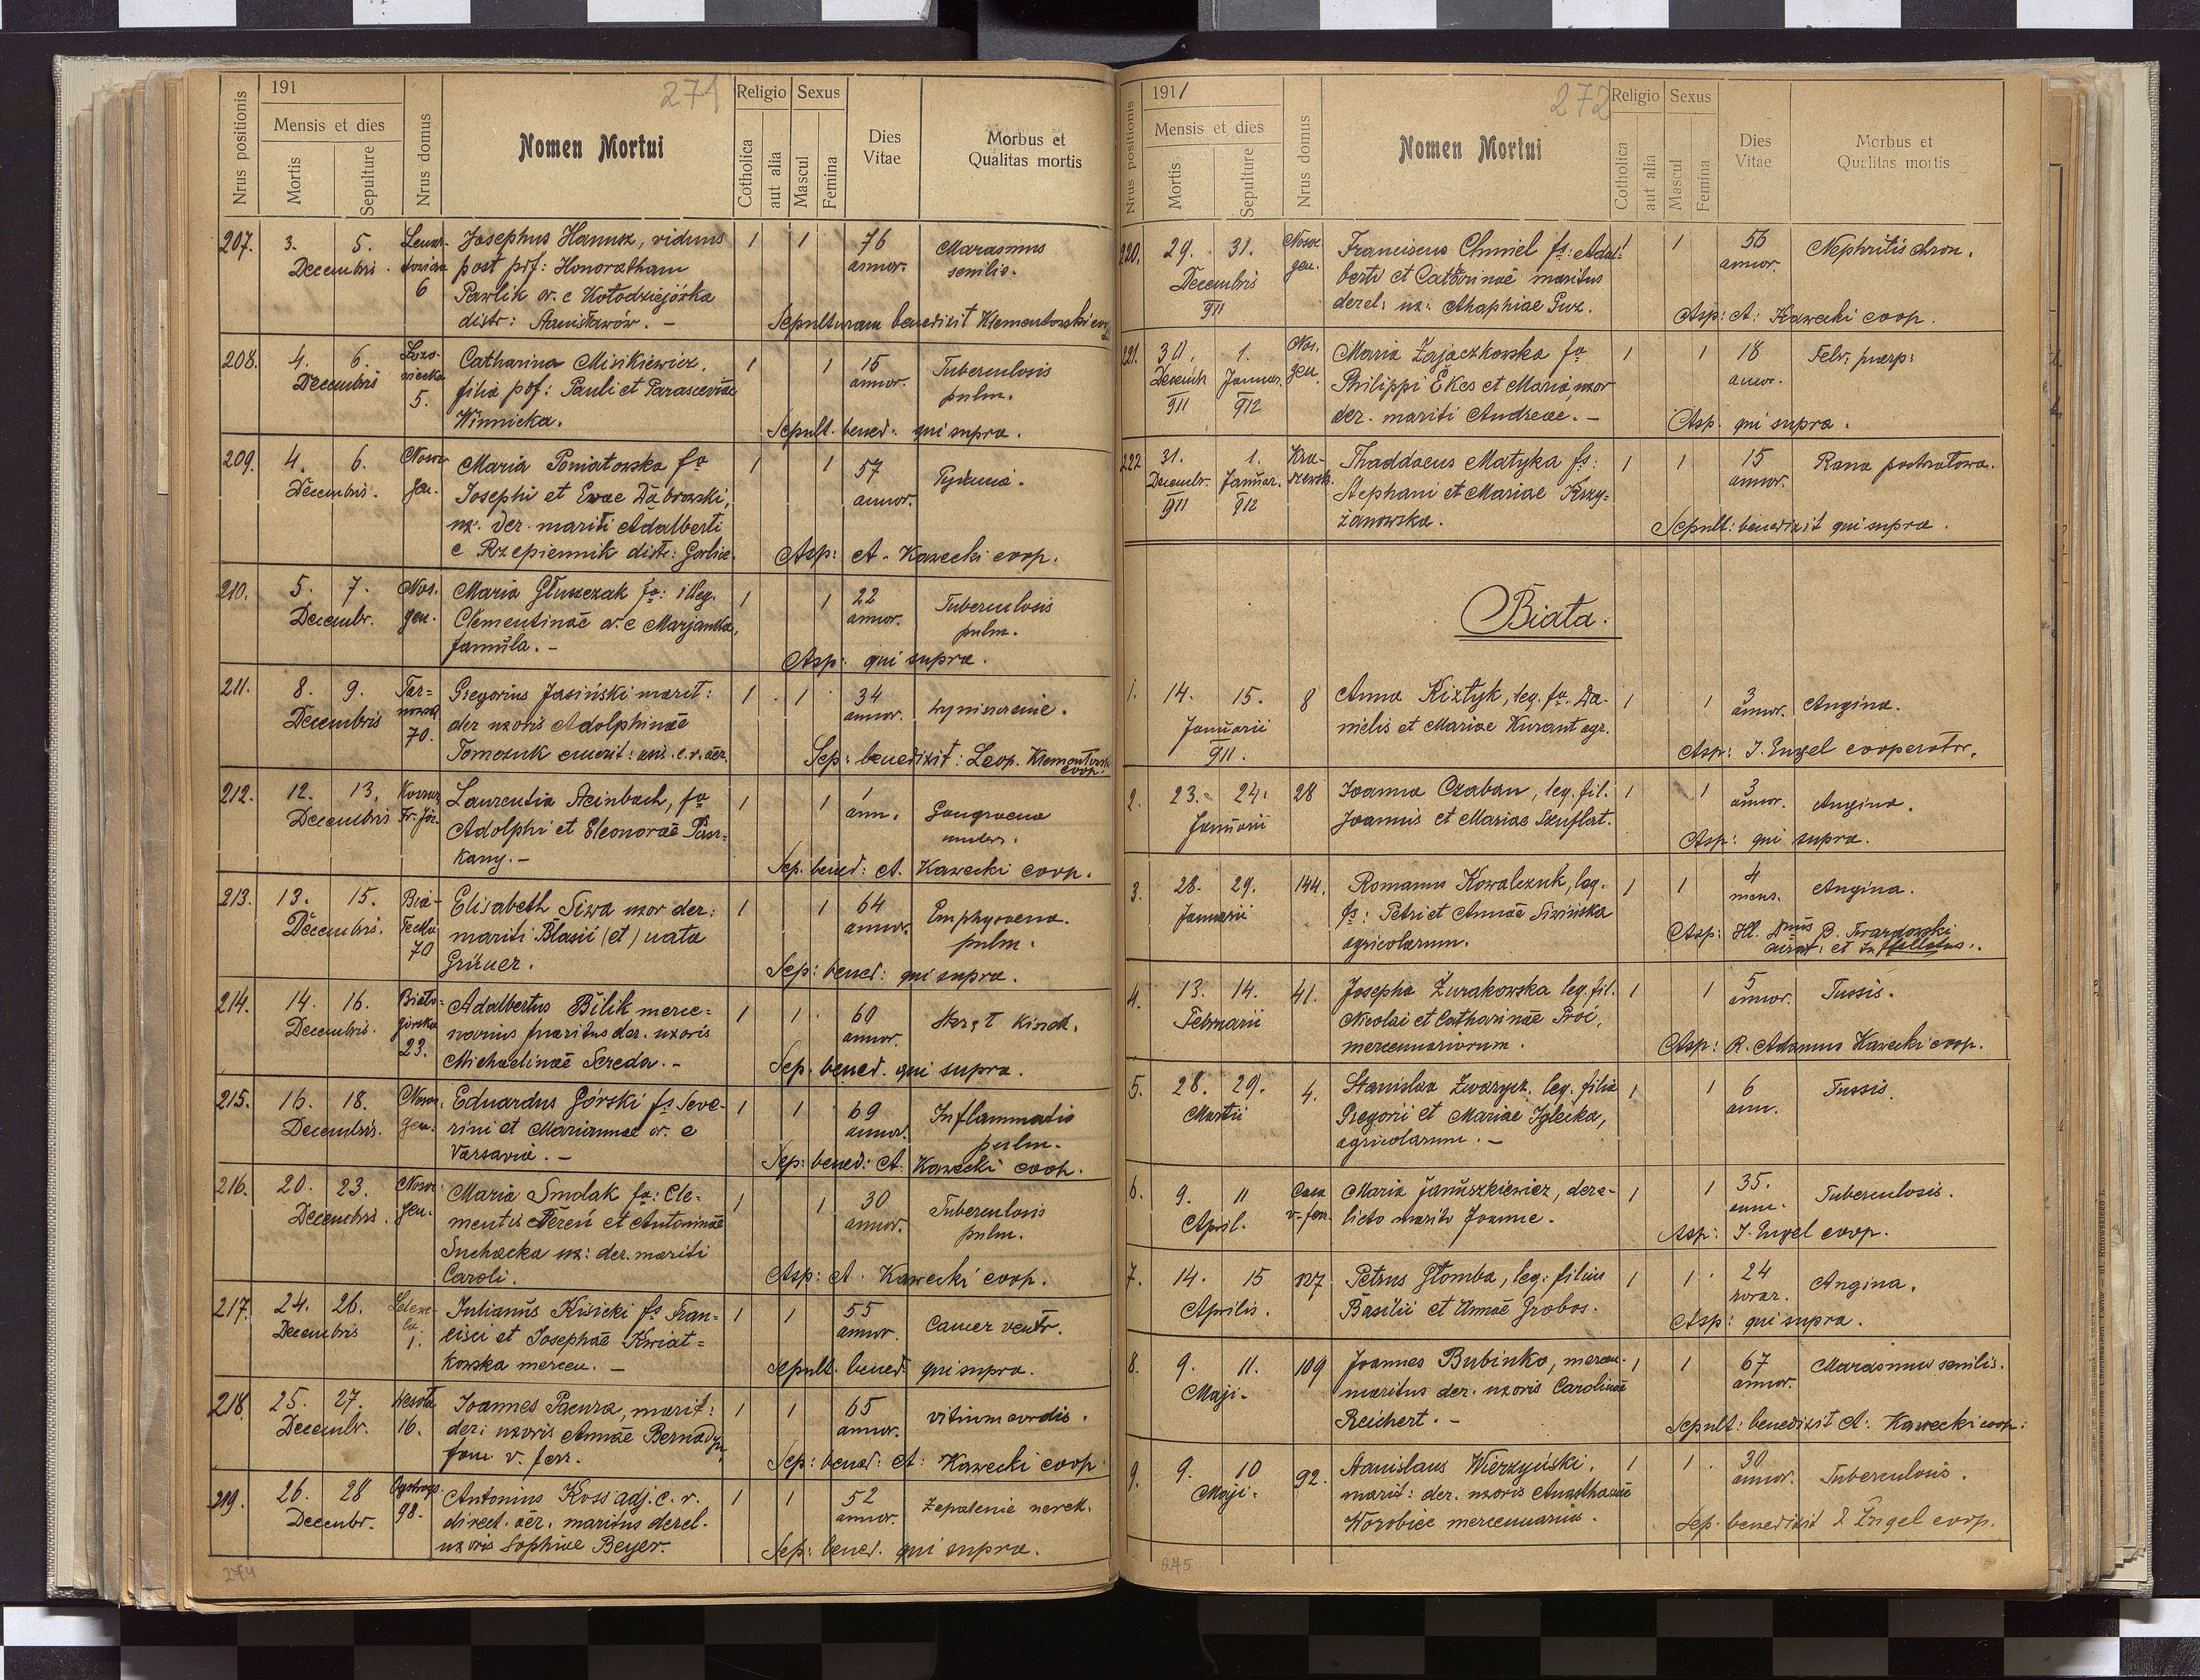 271
191
Religio Sexus
Mensis et dies
Nrus positionis
Mortis
Sepulture
Nrus domus
Nomen Mortui
Cotholica
aut alia
Mascul
Femina
Dies
Vitae
Morbus et
Qualitas mortis
207. 3. 5. Josephus Hanusz, viduus 1 1 76 Marasmus
Decembris. post pdf: Honoratham annor. senilis.
6 Pawlik or. e Kołodziejówka
distr: Stanisławów. - Sepulturam benedixit Klementowski
208. 4. 6. Catharina Misikiewicz, 1 1 15 Tuberculosis
Decembris filia pdf: Pauli et Parasceviae annor. pulm.
5. Winnicka. Sepult. bened. qui supra.
209. 4. 6. Nosoc. Maria Poniatowska fa 1 1 57
Decembris. gen. Josephi et Evae Dąbrowski, annor.
ux. der. mariti Adalberti
e Rzepiennik distr: Gorlice. Asp: A. Kawecki coop.
210. 5. 7. Nos. Maria Głuszczak fa: illeg. 1 1 22 Tuberculosis
Decembr. gen. Clementinae or. e Marjanka, annor. pulm.
famula. - Asp: qui supra.
211. 8. 9. Tar= Gregorius Jasiński marit: 1 1 34 wyniszczenie.
Decembris nowsk. der uxoris Adolphinae annor.
70. Tomczuk emerit: Sep: benedixit: Leop. Klementowski
coop.
212. 12. 13. Laurentia Steinbach, fa 1 1 1 Gangraena
Decembris Fr. Józ. Adolphi et Eleonorae ann.
kany. - Sep. bened: A. Kawecki coop.
213. 13. 15. Elisabeth Siwa uxor der: 1 1 64 Emphysema
Decembris. mariti Blasii (et) nata annor. pulm.
70 Grüner. Sep: bened: qui supra.
214. 14. 16. Adalbertus Bilik merce= 1 1 60 Skręt kiszek.
Decembris. narius maritus der. uxoris annor.
23. Michaelinae Sereda. - Sep. bened. qui supra.
215. 16. 18. Nosoc. Eduardus Górski fs Seve- 1 1 69 Inflammatio
Decembris. gen. rini et Mariannae or. e annor. pulm.
Varsavia. - Sep: bened: A. Kawecki coop.
216. 20. 23. Nosoc. Maria Smolak fa: Cle- 1 1 30 Tuberculosis
Decembris. gen. mentis Tereń et Antoninae annor. pulm.
Suchacka ux: der. mariti
Caroli. Asp: A. Kawecki coop.
217. 24. 26. Julianus Kisicki fs. Fran= 1 1 55 Cancer ventr.
Decembris cisci et Josephae Kwiat= annor.
1. kowska mercen. - Sepult. bened. qui supra.
218. 25. 27. Wesoła Joannes Pacura, marit: 1 1 65 vitium cordis.
Decembr. 16. der: uxoris Annae annor.
fam v. ferr. Sep: bened: A: Kawecki coop.
219. 26. 28 Antonius Koss adj. c. r. 1 1 52 Zapalenie nerek.
Decembr. 98. direct. aer. maritus derel. annor.
uxoris Sophiae Beyer. Sep: bened. qui supra.
274
272
1911
Religio Sexus
Mensis et dies
Nrus positionis
Mortis
Sepulture
Nrus domus
Nomen Mortui
Cotholica
aut alia
Mascul
Femina
Dies
Vitae
Morbus et
Qualitas mortis
220. 29. 31. Nosoc. Franciscus Chmiel fs: Adal= 1 1 56 Nephritis chron.
Decembris gen. berti et Catharinae maritus annor.
911 derel: ux: Agaphiae Asp: A: Kawecki coop.
221. 30. 1. Nos. Maria Zajaczkowska fa 1 1 18 Febr. puerp:
Decemb. Januar. gen. Philippi Ekes et Maria, uxor annor.
911 912 der. mariti Andreae. - Asp. qui supra.
222 31. 1. Kra- Thaddaeus Matyka fs: 1 1 15 Rana postrzałowa.
Decembr. Januar. szewsk. Stephani et Mariae Krzy= annor.
911 912 żanowska. Sepult: benedixit qui supra.
Biała.
1. 14. 15. 8 Anna Kiztyk, leg. fa. Da- 1 1 3 Angina.
Januarii nielis et Mariae Kurant agr. annor.
911. Asp: J. Engel cooperator.
2. 23. 24. 28 Joanna Czaban, leg. fil. 1 1 3 Angina.
Januarii Joannis et Mariae Szuflat. annor.
Asp: qui supra.
3. 28. 29. 144. Romanus Kowalczuk, leg. 1 1 4 Angina.
Januarii fs: Petri et Annae Siwińska mens.
agricolarum. Asp: Ill. Dnus B. Twardowski
4. 13. 14. 41. Josepha Żurakowska leg. fil. 1 1 5 Tussis.
Februarii Nicolai et Catharinae Proć, annor.
mercenariorum. Asp: R. Adamus Kawecki coop.
5. 28. 29. 4. Stanislaa Zwarycz, leg. filia 1 1 6 Tussis.
Martii Gregorii et Mariae Iglecka, ann.
agricolarum. -
6. 9. 11 Casa Maria Januszkiewicz, dere- 1 1 35. Tuberculosis.
April. v. ferr. licto marito Joanne. ann.
Asp: J. Engel coop.
7. 14. 15 127 Petrus Głomba, leg: filius 1 1 24 Angina.
Aprilis. Basilii et Annae Grobos. horar.
Asp: qui supra.
8. 9. 11. 109 Joannes Bubinko, mercen. 1 1 67 Marasmus senilis.
Maji. maritus der. uxoris Carolinae annor.
Reichert. - Sepult: benedixit A: Kawecki coop:
9. 9. 10 92. Stanislaus Wierzyński, 1 1 30 Tuberculosis.
Maji. marit: der. uxoris Anasthasiae annor.
Worobiec mercenarius. Sep. benedixit J Engel coop.
275